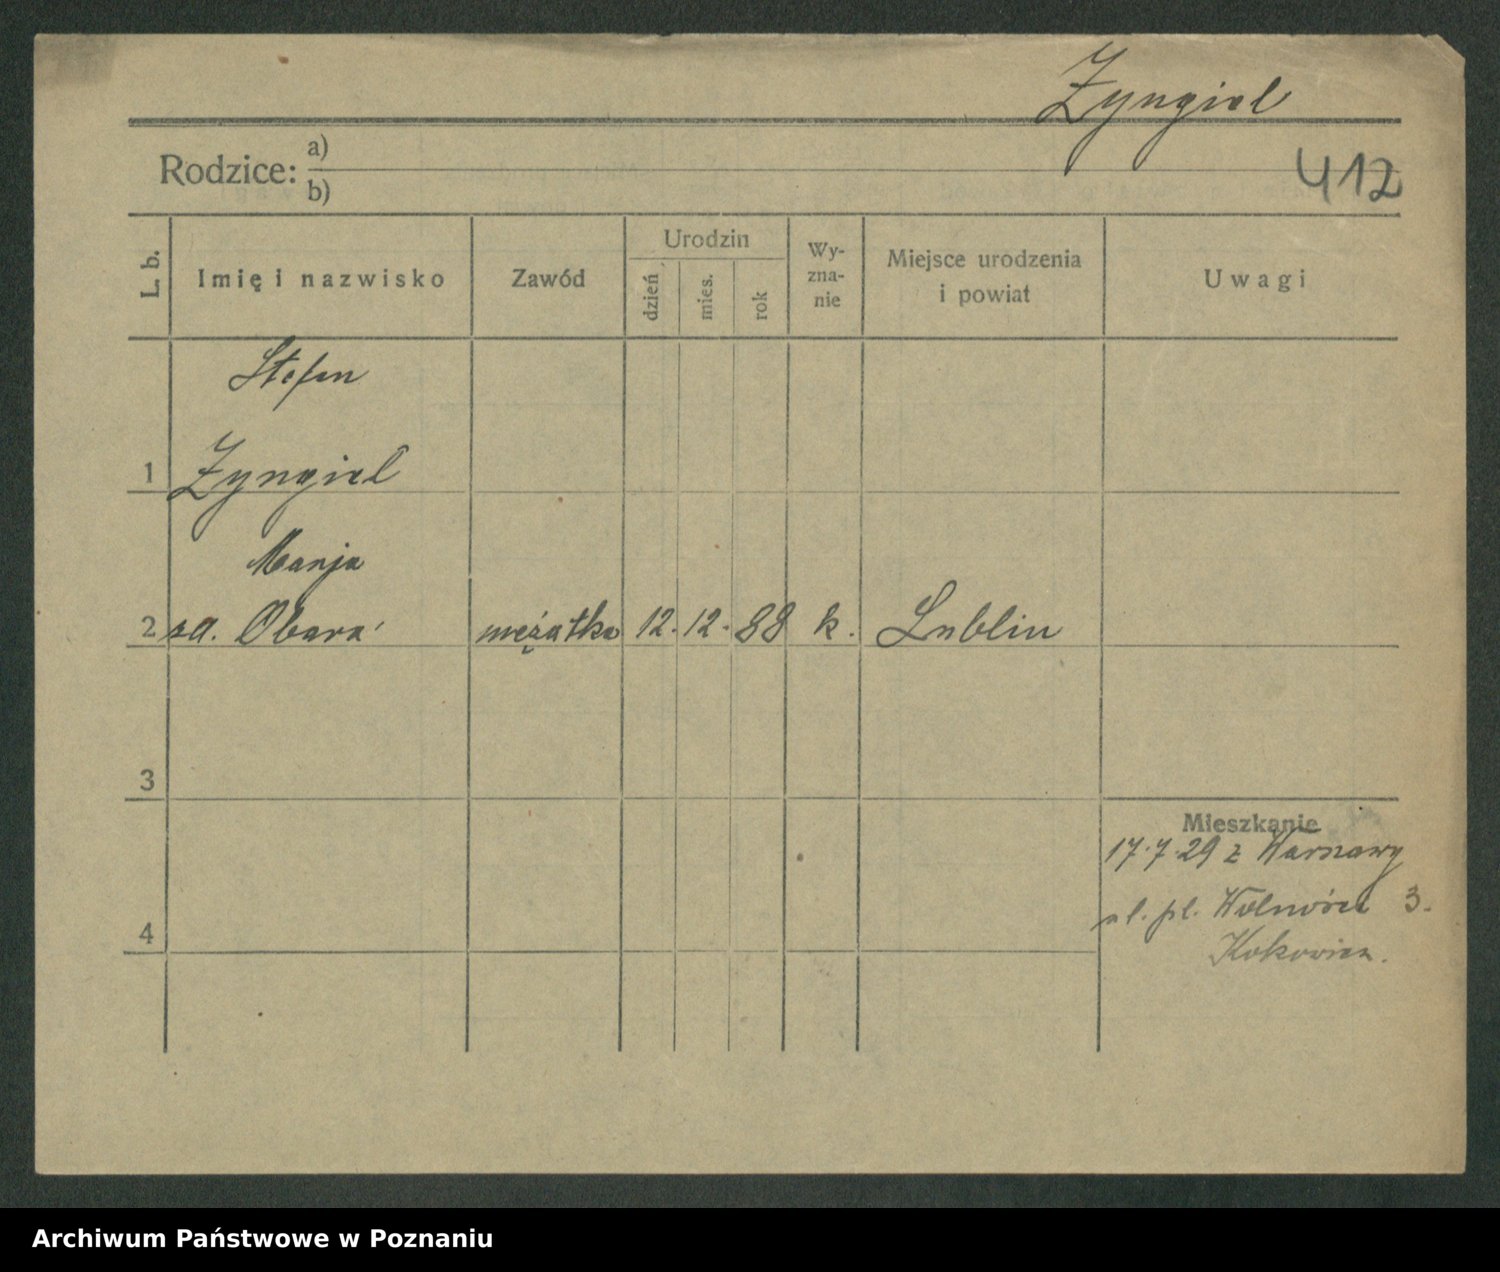 Żyngiel
Rodzice: a)
b)
412
L. b.
Imię i nazwisko
Zawód
Urodzin
dzień
mies.
rok
Wy-
zna-
nie
Miejsce urodzenia
i powiat
Uwagi
Stefan
1 Żyngiel
Marja
2 zd. Obara mężatka 12. 12. 88 k. Lublin
3
Mieszkanie
17.7.29 z Warszawy
ul. pl. Wolności 3.
4
Archiwum Państwowe w Poznaniu